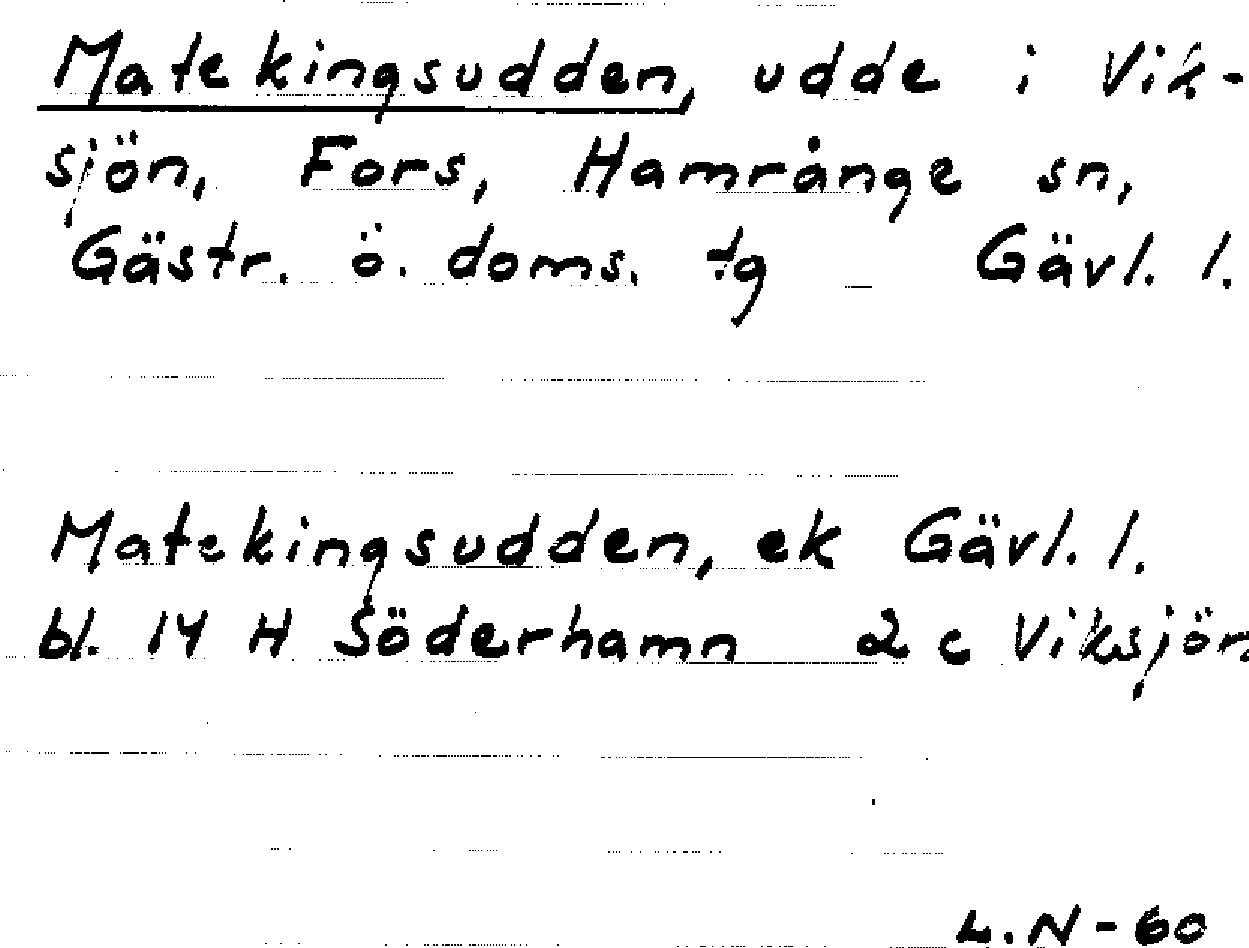 Matekingsudden, udde i Vik-
sjön, Fors, Hamrånge sn,
Gästr. ö. doms. tg Gävl. l.
Matekingsudden, ek Gävl. l.
bl. 14 H Söderhamn 2 c Viksjön
L.N-60